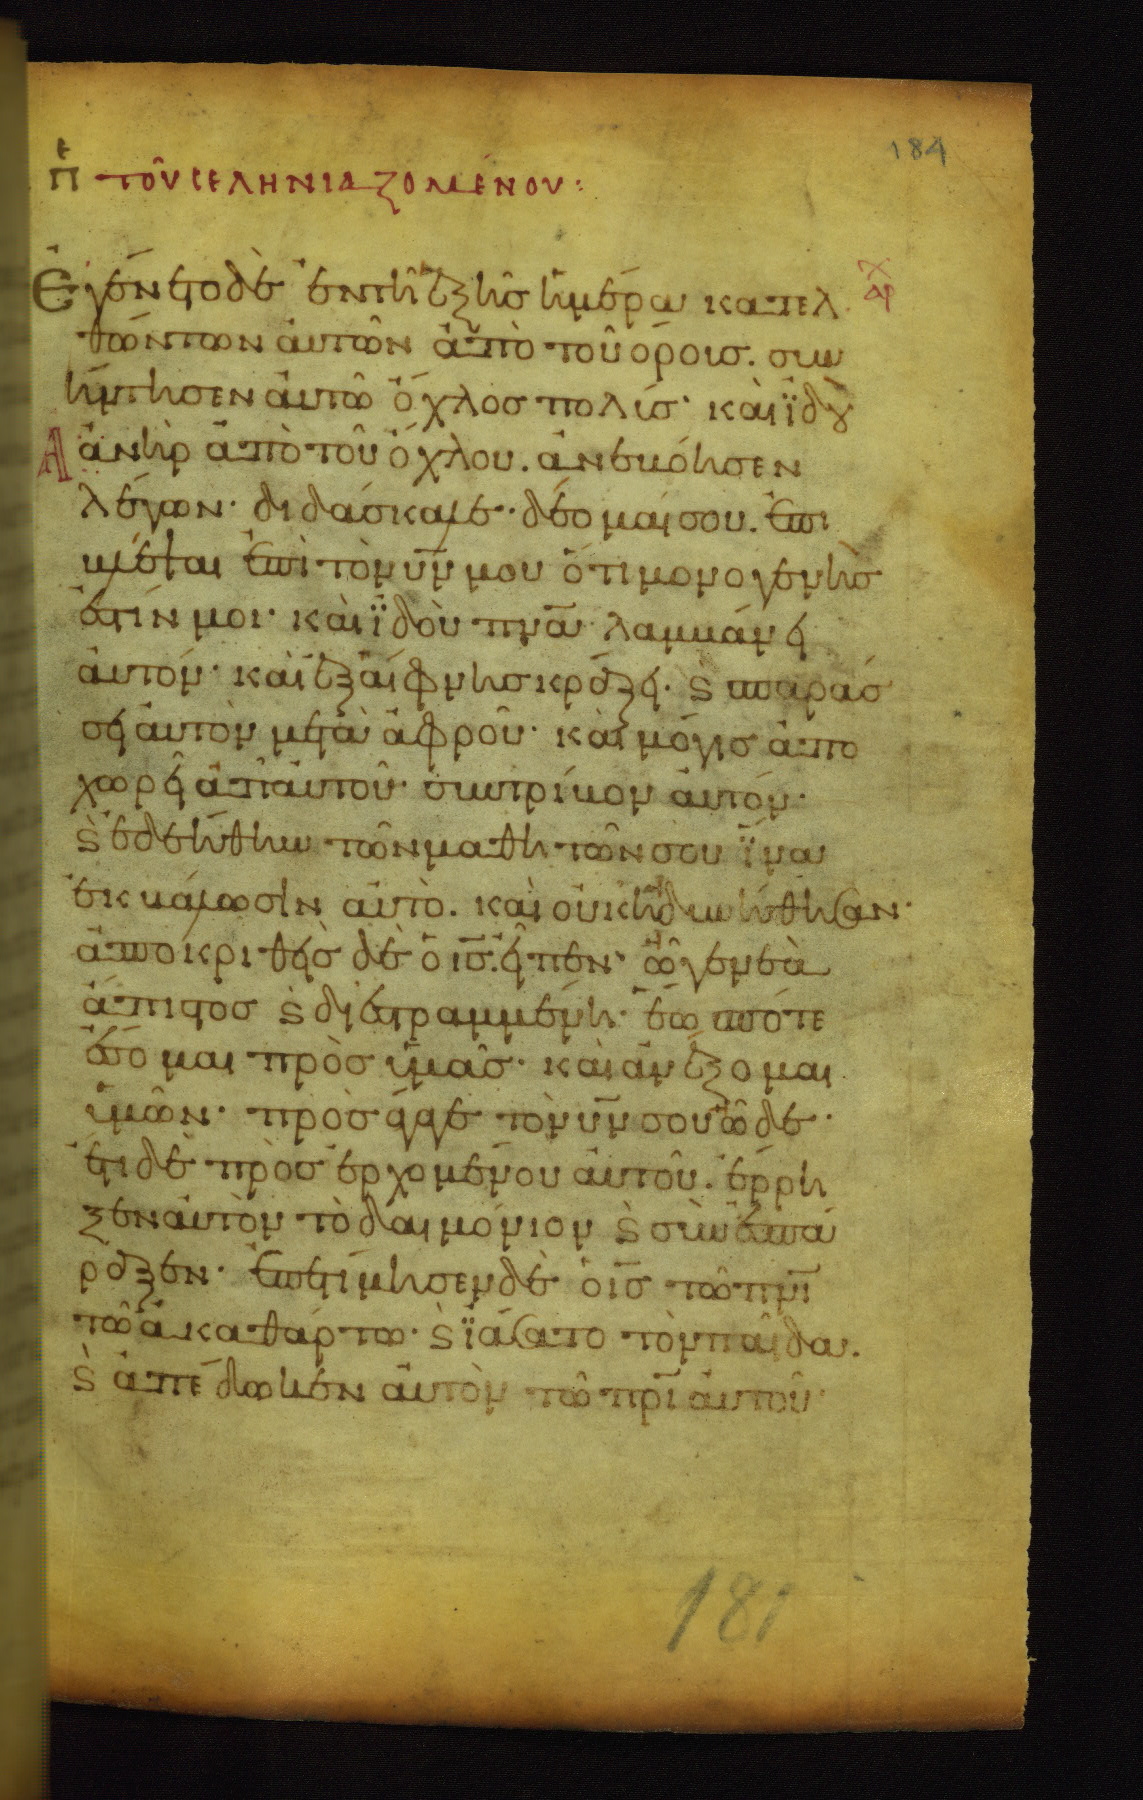 184
πε τοῦ σεληνιαζομένου:
Ἐγένετο δὲ ἐν τῆ ἑξῆσ ἡμέρα κατελ
θώντων ἀυτῶν ἀπὸ τοῦ όροισ. συν
ήντησεν ἀυτῶ ὄχλοσ πολίσ· κὰι ϊδοὺ
ἀνὴρ ἀπὸ τοῦ ὄχλου. ἀνεβόησεν
λέγων· διδάσκαλε· δέομαί σου. ἐπι
βλέψαι ἐπὶ τὸν υν μου ὅτι μονογενὴσ
ἐστίν μοι· κὰι ϊδοὺ πνα λαμβάνει
ἀυτόν· κὰι ἐξαίφνησ κράζει. ϛ σπαράσ
σει ἀυτὸν μετὰ ἀφροῦ· κὰι μόγισ ἀπο
χωρεῖ ἀπ ἀυτοῦ· συντρίβον ἀυτόν·
ϛ ἐδεήθην τῶν μαθητῶν σου ϊνα
ἐκβάλωσιν ἀυτὸ. κὰι οὐκ ἠδυνήθησαν·
ἀποκριθεὶσ δὲ ὁ ισ. εἶπεν· ὦ γενεὰ
άπιστοσ ϛ διεστραμμένη· ἕωσ πότε
ἔσομαι πρὸσ ὑμᾶσ· κὰι ἀνέξομαι
ὑμῶν· πρὸσ άγαγε τὸν υν σου ὧδε·
ἔτι δὲ πρὸσ ἐρχομένου ἀυτοῦ. έρρη
ξεν ἀυτὸν τὸ δαιμόνιον ϛ συνεσπά
ραξεν· ἐπετίμησεν δὲ ὁ ισ τῶ πνι
τῶ ἀκαθάρτω· ϛ ϊάσατο τὸν παῖδα.
ϛ ἀπέδωκεν ἀυτὸν τῶ πρι ἀυτοῦ·
181